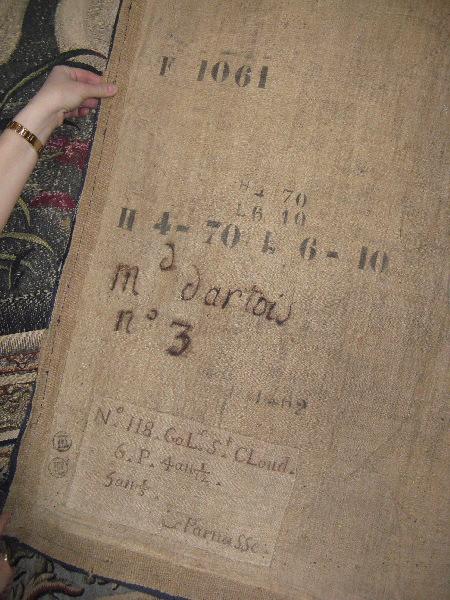 F 1061
H 4 70
L 6 10
H 4 - 70 L 6 - 10
md dartois
n° 3
N° 118. GaL.e St CLoud.
6. P. 4 an 1/2.
5 an 1/3.
Le Parnasse.